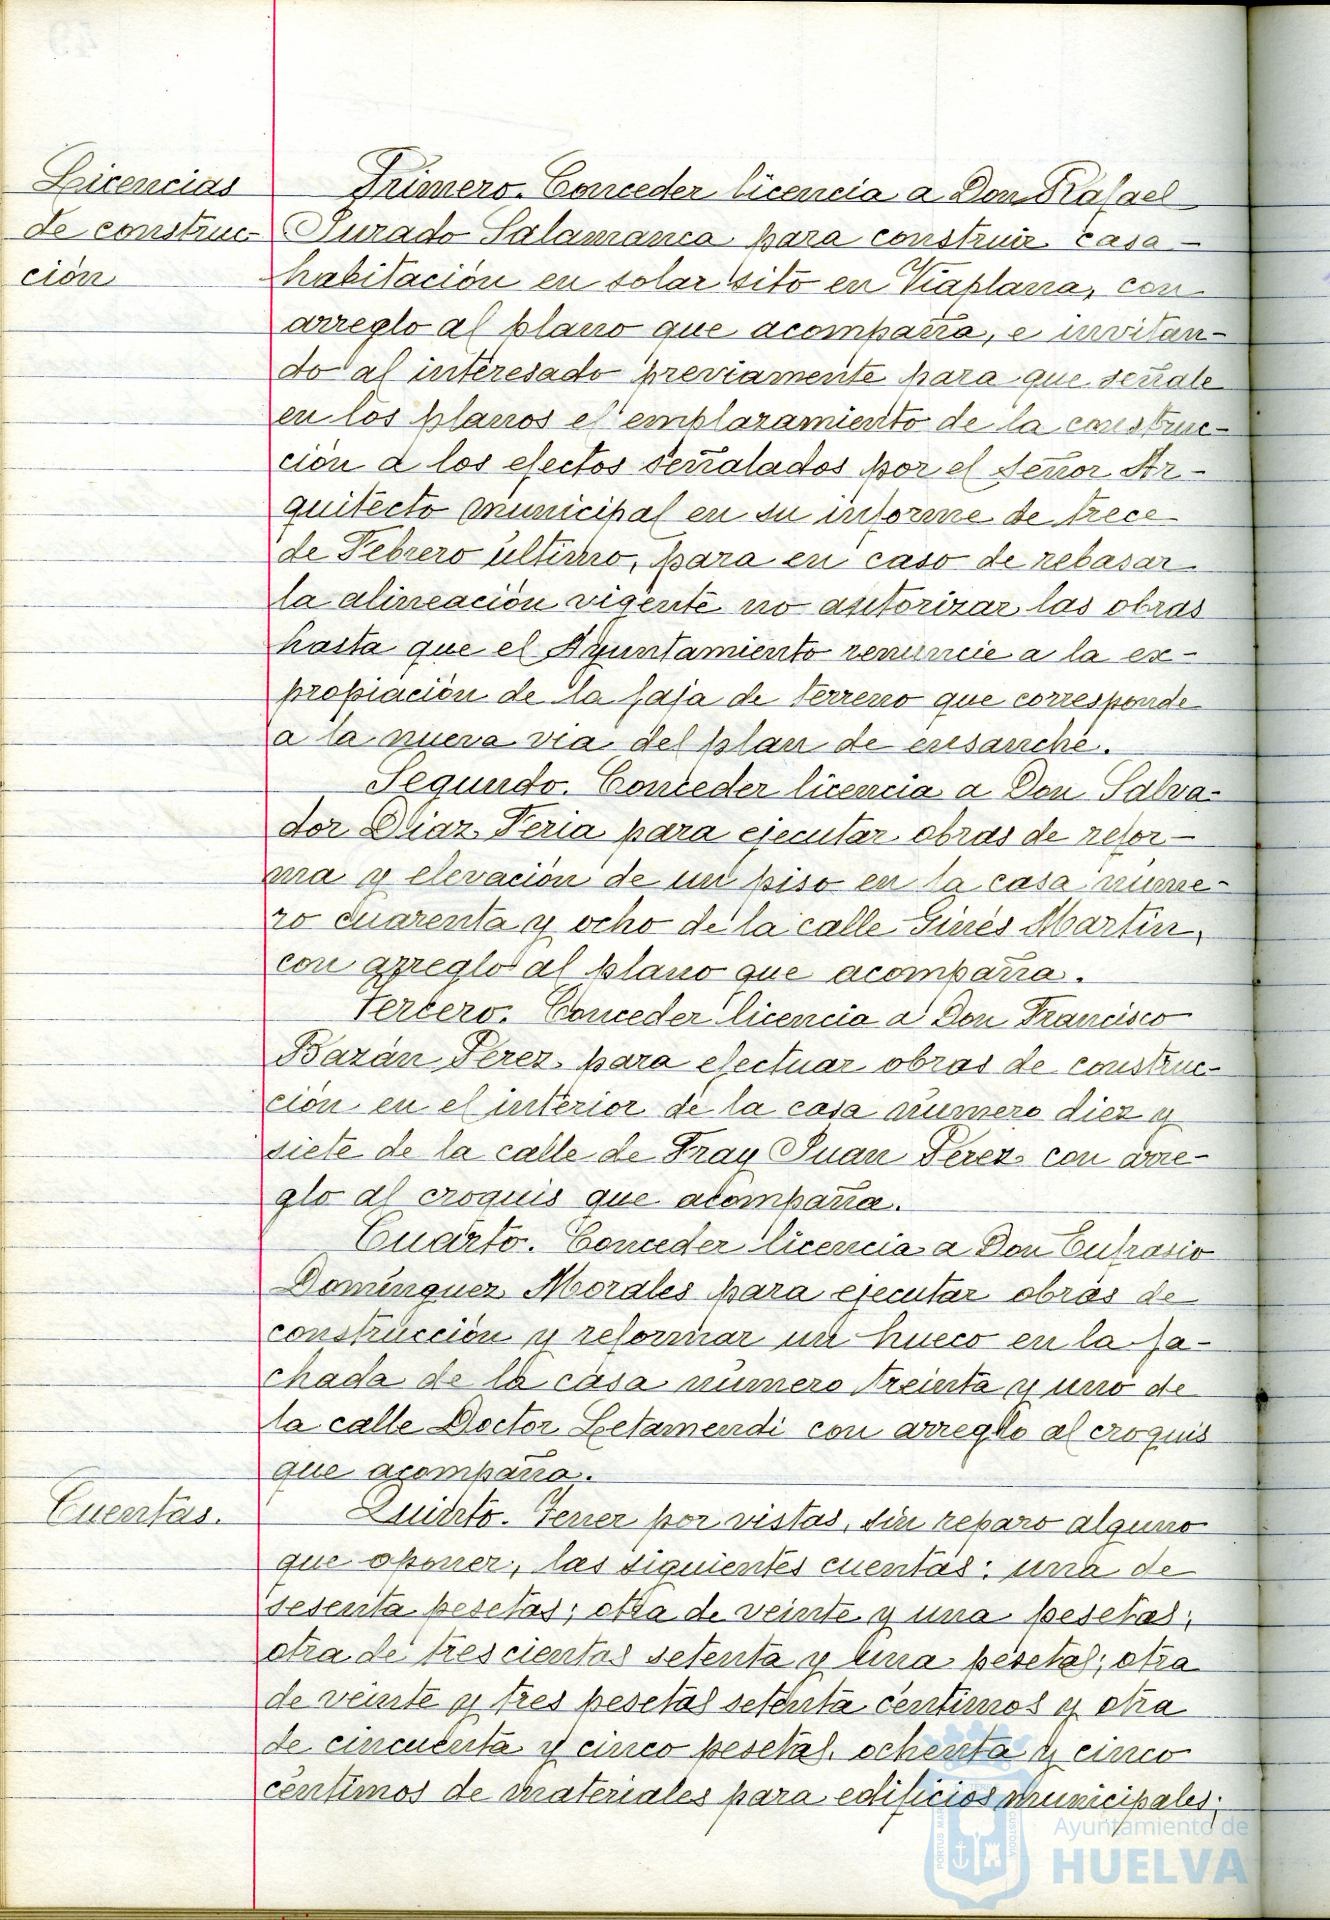 Licencias
de construc-
ción
Primero. Conceder licencia a Don Rafael
Jurado Salamanca para construir casa-
habitación en solar sito en Viaplana, con
arreglo al plano que acompaña, e invitan-
do al interesado previamente para que señale
en los planos el emplazamiento de la construc-
ción a los efectos señalados por el señor Ar-
quitecto municipal en su informe de trece
de Febrero último, para en caso de rebasar
la alineación vigente no autorizar las obras
hasta que el Ayuntamiento renuncie a la ex-
propiación de la faja de terreno que corresponde
a la nueva via del plan de ensanche.
Segundo. Conceder licencia a Don Salva-
dor Diaz Feria para ejecutar obras de refor-
ma y elevación de un piso en la casa núme-
ro cuarenta y ocho de la calle Ginés Martín,
con arreglo al plano que acompaña.
Tercero. Conceder licencia a Don Francisco
Bazán Pérez para efectuar obras de construc-
ción en el interior de la casa número diez y
siete de la calle de Fray Juan Pérez con arre-
glo al croquis que acompaña.
Cuarto. Conceder licencia a Don Eufrasio
Domínguez Morales para ejecutar obras de
construcción y reformar un hueco en la fa-
chada de la casa número treinta y uno de
la calle Doctor Letamendi con arreglo al croquis
que acompaña.
Cuentas.
Quinto. Tener por vistas, sin reparo alguno
que oponer, las siguientes cuentas: una de
sesenta pesetas; otra de veinte y una pesetas;
otra de trescientas setenta y una pesetas; otra
de veinte y tres pesetas setenta céntimos y otra
de cincuenta y cinco pesetas, ochenta y cinco
céntimos de materiales para edificios municipales;
Ayuntamiento de
HUELVA